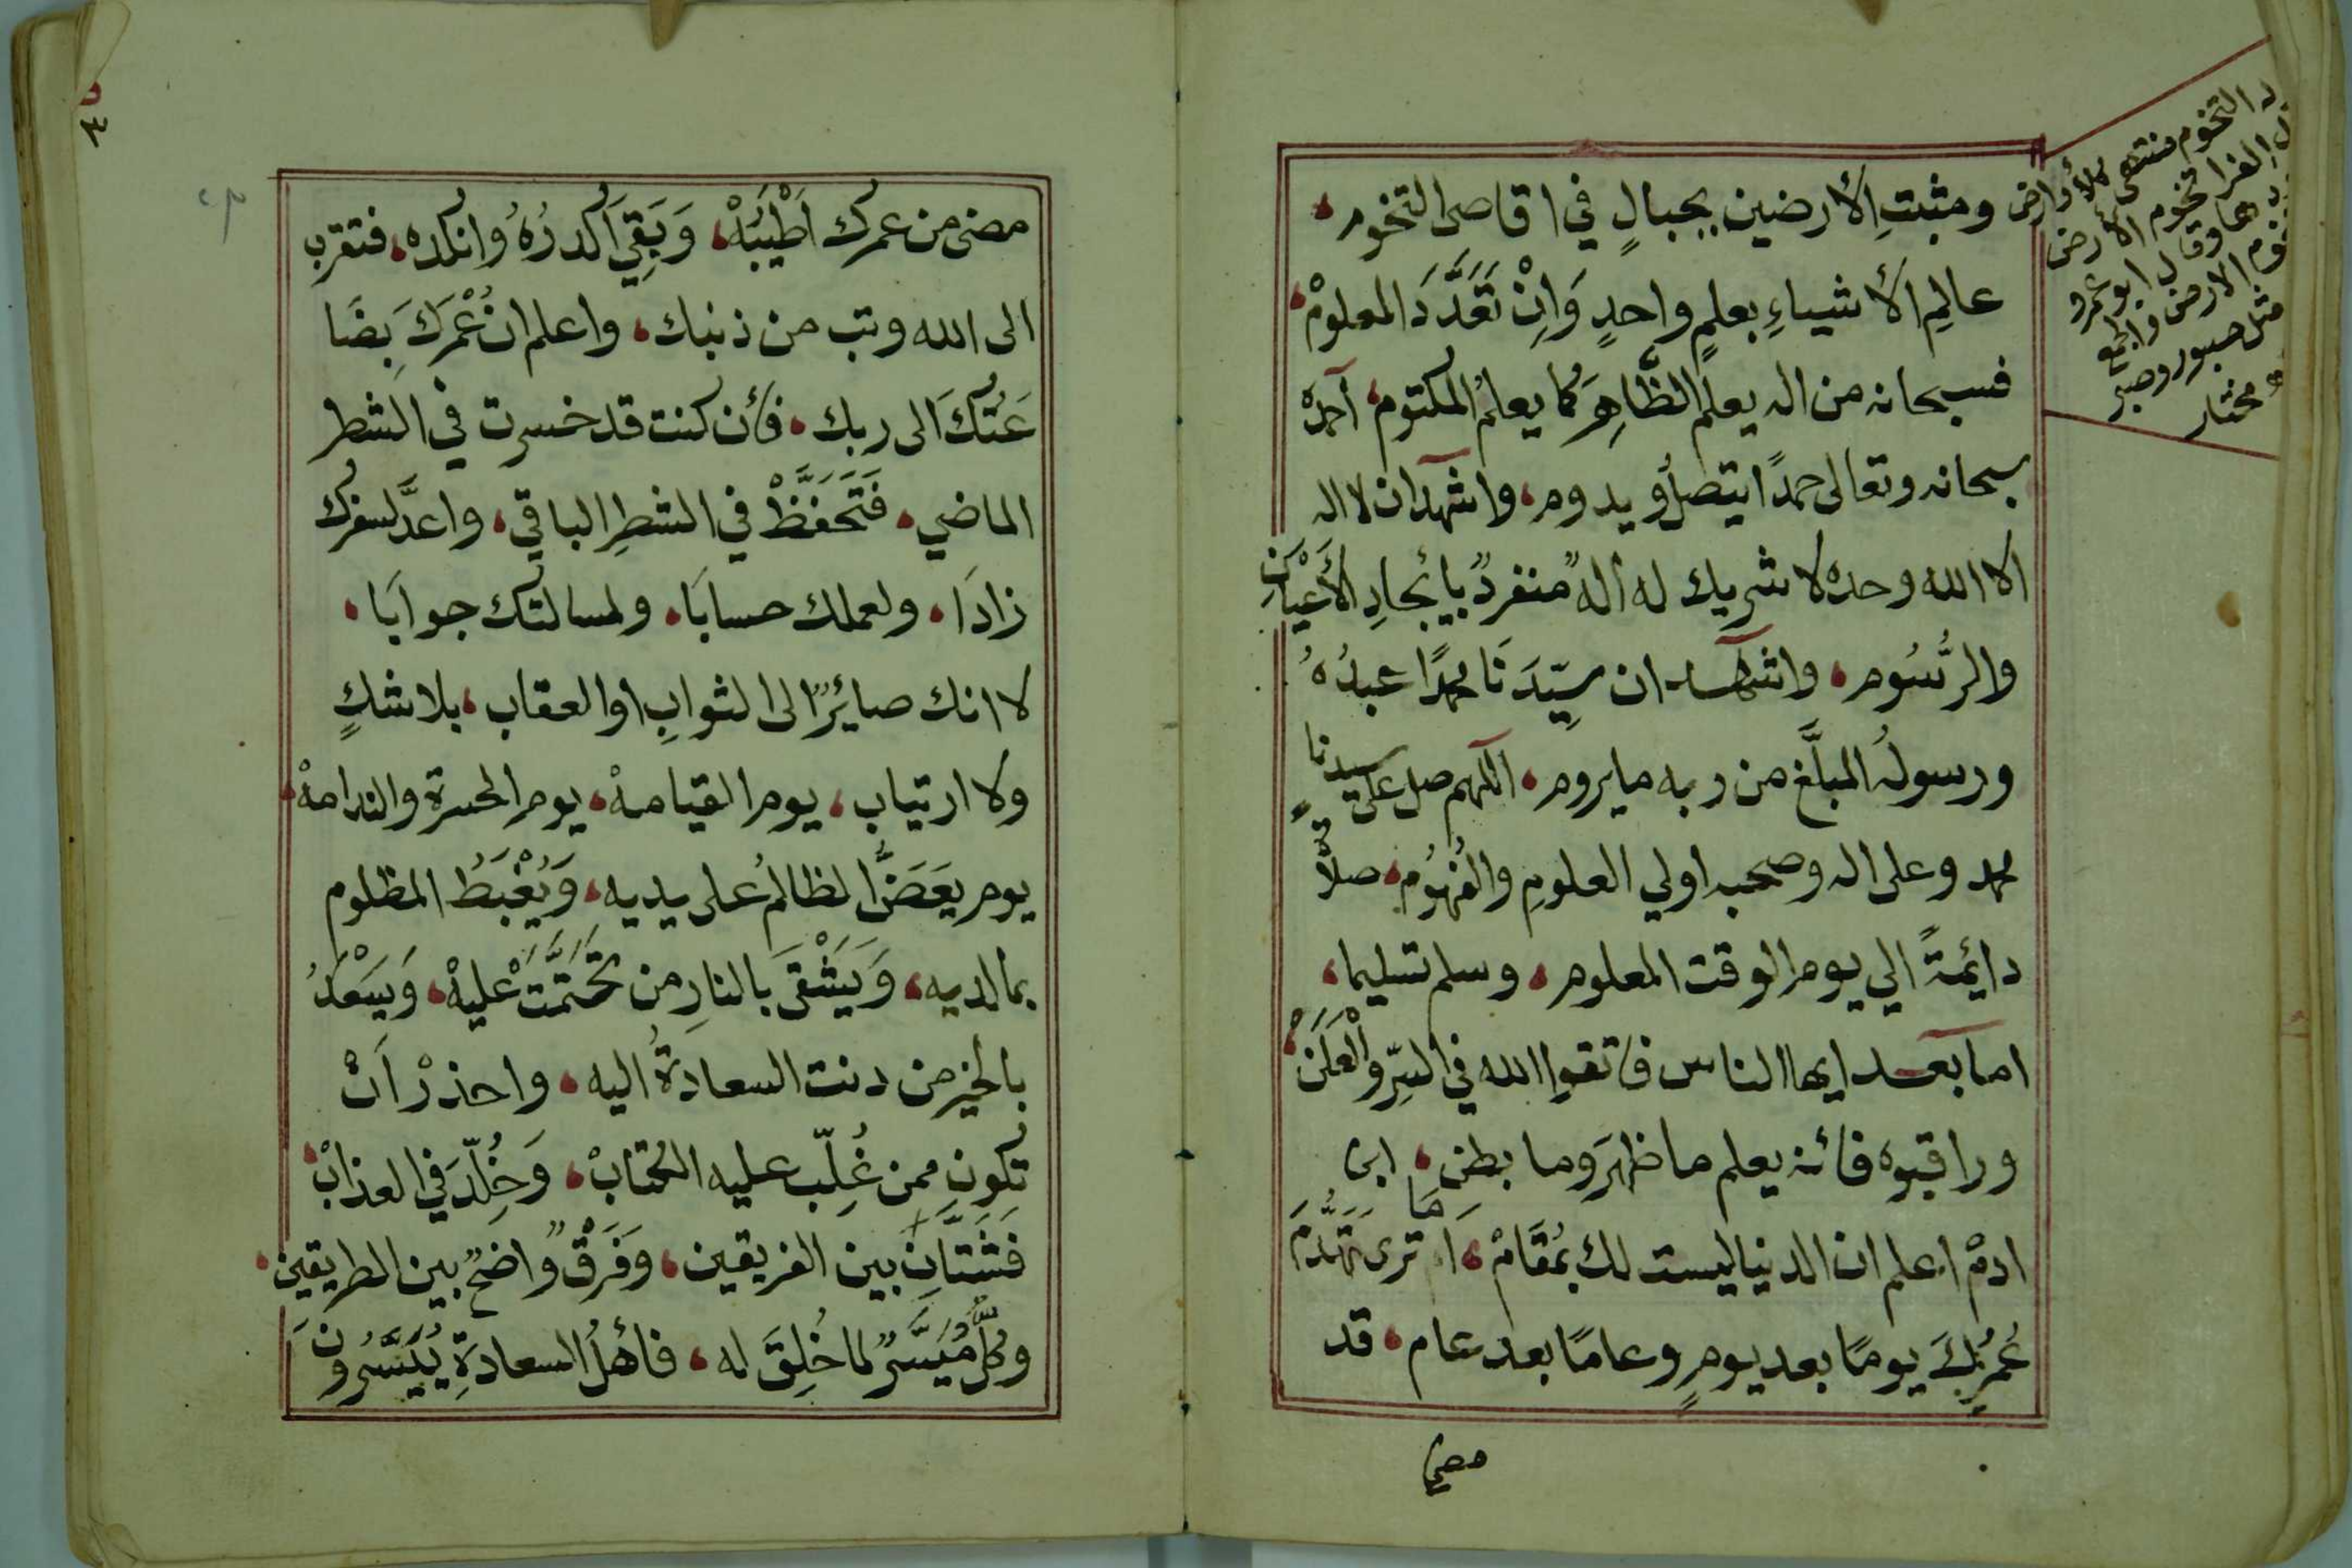 ومثبتِ الأرضين بجبالٍ في اقاصى التخوم،
عالِمِ الأشياءِ بعلمٍ واحدٍ وَاِنْ تَعَدَّدَ المعلومْ،
فسبحانه من اله يعلم الظَّاهِرَ كما يعلمُ المكتوم، آحمده
سبحانه وتعالى حمدًا يتصلُ ويدوم، واشهد ان لا اله
الا الله وحده لا شريك له أله منفردٌ بأيجادِ الأَعْيَانِ
والرُّسُوم، واشهد ان سيِّدَنَا محمدًا عبدُهُ
ورسولُه المبلَّغ من ربه ما يروم، اللهم صل على سيدنا
محمد وعلى اله وصحبه اولي العلومِ والفُهُوُم، صلاةً
دائمةً الي يوم الوقت المعلوم، وسلم تسليما،
اما بعد ايها الناس فاتقوا الله في السِّرِّ والْعَلَنْ،
وراقبوه فأنه يعلم ما ظهَرَ وما بطن، ابن
ادمْ اعلم ان الدنيا ليست لك بمُقَامْ، اَمَا ترى تَهَدُّمَ
عُمُرِكَ يومًا بعد يومٍ وعامًا بعد عام، قد
مضى
التخوم منتهى
الفرا تخوم الأرض
وقال ابو عمرو
الارض والجمع
مثل صبور وصبر
مختار
مضى من عمرك اَطْيَبُهْ، وَبَقِيَ اَكدرُهُ وانكده، فتقرب
الى الله وتب من ذنبك، واعلم ان عُمْرَكَ بِضَا
عَتُكَ الى ربك، فأن كنت قد خسرت في الشطر
الماضي، فَتَحَفَّظْ في الشطرِ الباقي، واعدَّ لسفرك
زادًا، ولعملك حسابًا، ولمسالتك جوابًا،
لا انك صائرٌ الى الثوابِ او العقاب، بلا شكٍ
ولا ارتياب، يوم القيامهْ، يوم الحسرة والندامهْ،
يوم يعَضُّ الظالمُ على يديه، وَيُغْبَطُ المظلوم
بما لديه، وَيَشْقَى بالنارِ من تحَتَّمَتْ عليهْ، وَيَسْعَدُ
بالخير من دنت السعادةُ اليه، واحذرْ اَنْ
تكونَ ممن غُلِّب عليه الكتابْ، وَخُلِّدَ في العذابْ،
فَشَتَّانَ بين الفريقين، وَفَرْقٌ واضحٌ بين الطريقين،
وكلٌّ مُيَسَّرٌ لما خُلِقَ له، فأهلُ السعادةِ يُيَسَّرُونَ